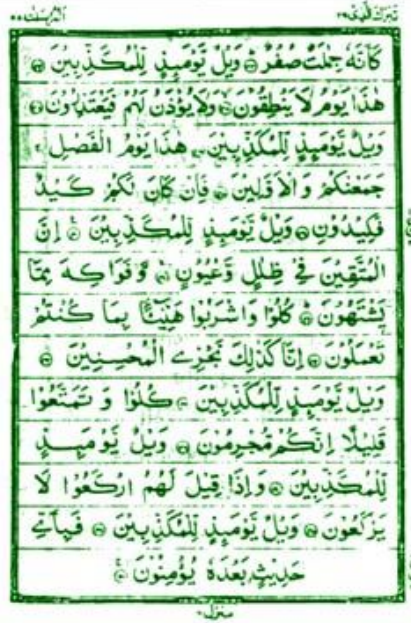 تبٰرك الذی ٢٩
المرسلت ٧٧
كَاَنَّهٗ جِمٰلَتٌ صُفْرٌ ۝ وَيْلٌ يَّوْمَىِٕذٍ لِّلْمُكَذِّبِيْنَ ۝
هٰذَا يَوْمُ لَا يَنْطِقُوْنَ ۝ وَلَا يُؤْذَنُ لَهُمْ فَيَعْتَذِرُوْنَ ۝
وَيْلٌ يَّوْمَىِٕذٍ لِّلْمُكَذِّبِيْنَ ۝ هٰذَا يَوْمُ الْفَصْلِ ۚ
جَمَعْنٰكُمْ وَ الْاَوَّلِيْنَ ۝ فَاِنْ كَانَ لَكُمْ كَيْدٌ
فَكِيْدُوْنِ ۝ وَيْلٌ يَّوْمَىِٕذٍ لِّلْمُكَذِّبِيْنَ ۝ اِنَّ
الْمُتَّقِيْنَ فِيْ ظِلٰلٍ وَّعُيُوْنٍ ۝ وَّفَوَاكِهَ مِمَّا
يَشْتَهُوْنَ ۝ كُلُوْا وَاشْرَبُوْا هَنِيْٓئًۢا بِمَا كُنْتُمْ
تَعْمَلُوْنَ ۝ اِنَّا كَذٰلِكَ نَجْزِي الْمُحْسِنِيْنَ ۝
وَيْلٌ يَّوْمَىِٕذٍ لِّلْمُكَذِّبِيْنَ ۝ كُلُوْا وَ تَمَتَّعُوْا
قَلِيْلًا اِنَّكُمْ مُّجْرِمُوْنَ ۝ وَيْلٌ يَّوْمَىِٕذٍ
لِّلْمُكَذِّبِيْنَ ۝ وَاِذَا قِيْلَ لَهُمُ ارْكَعُوْا لَا
يَرْكَعُوْنَ ۝ وَيْلٌ يَّوْمَىِٕذٍ لِّلْمُكَذِّبِيْنَ ۝ فَبِاَيِّ
حَدِيْثٍۭ بَعْدَهٗ يُؤْمِنُوْنَ ۝
منزل ٧